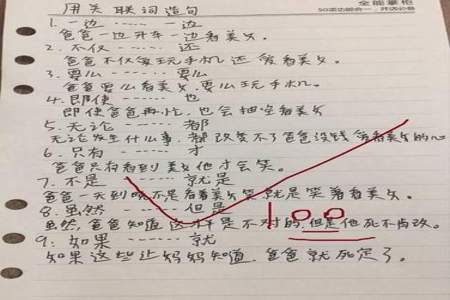 全能掌柜
用关联词造句
1. 一边 …… 一边
爸爸一边开车一边看美女。
2. 不仅 …… 还
爸爸不仅爱玩手机还爱看美女。
3. 要么 …… 要么
爸爸要么看美女,要么玩手机。
4. 即使 …… 也
即使爸爸再忙,也会抽空看美女
5. 无论 …… 都
无论发生什么事,都改变不了爸爸没钱爱看美女的心
6. 只有 …… 才
爸爸只有看到美女他才会笑。
7. 不是 …… 就是
爸爸一天到晚不是看着美女笑就是笑着看美女。
8. 虽然 …… 但是
虽然,爸爸知道这样是不对的,但是他死不肯改。
9: 如果 …… 就
如果这些让妈妈知道,爸爸就死定了。
100